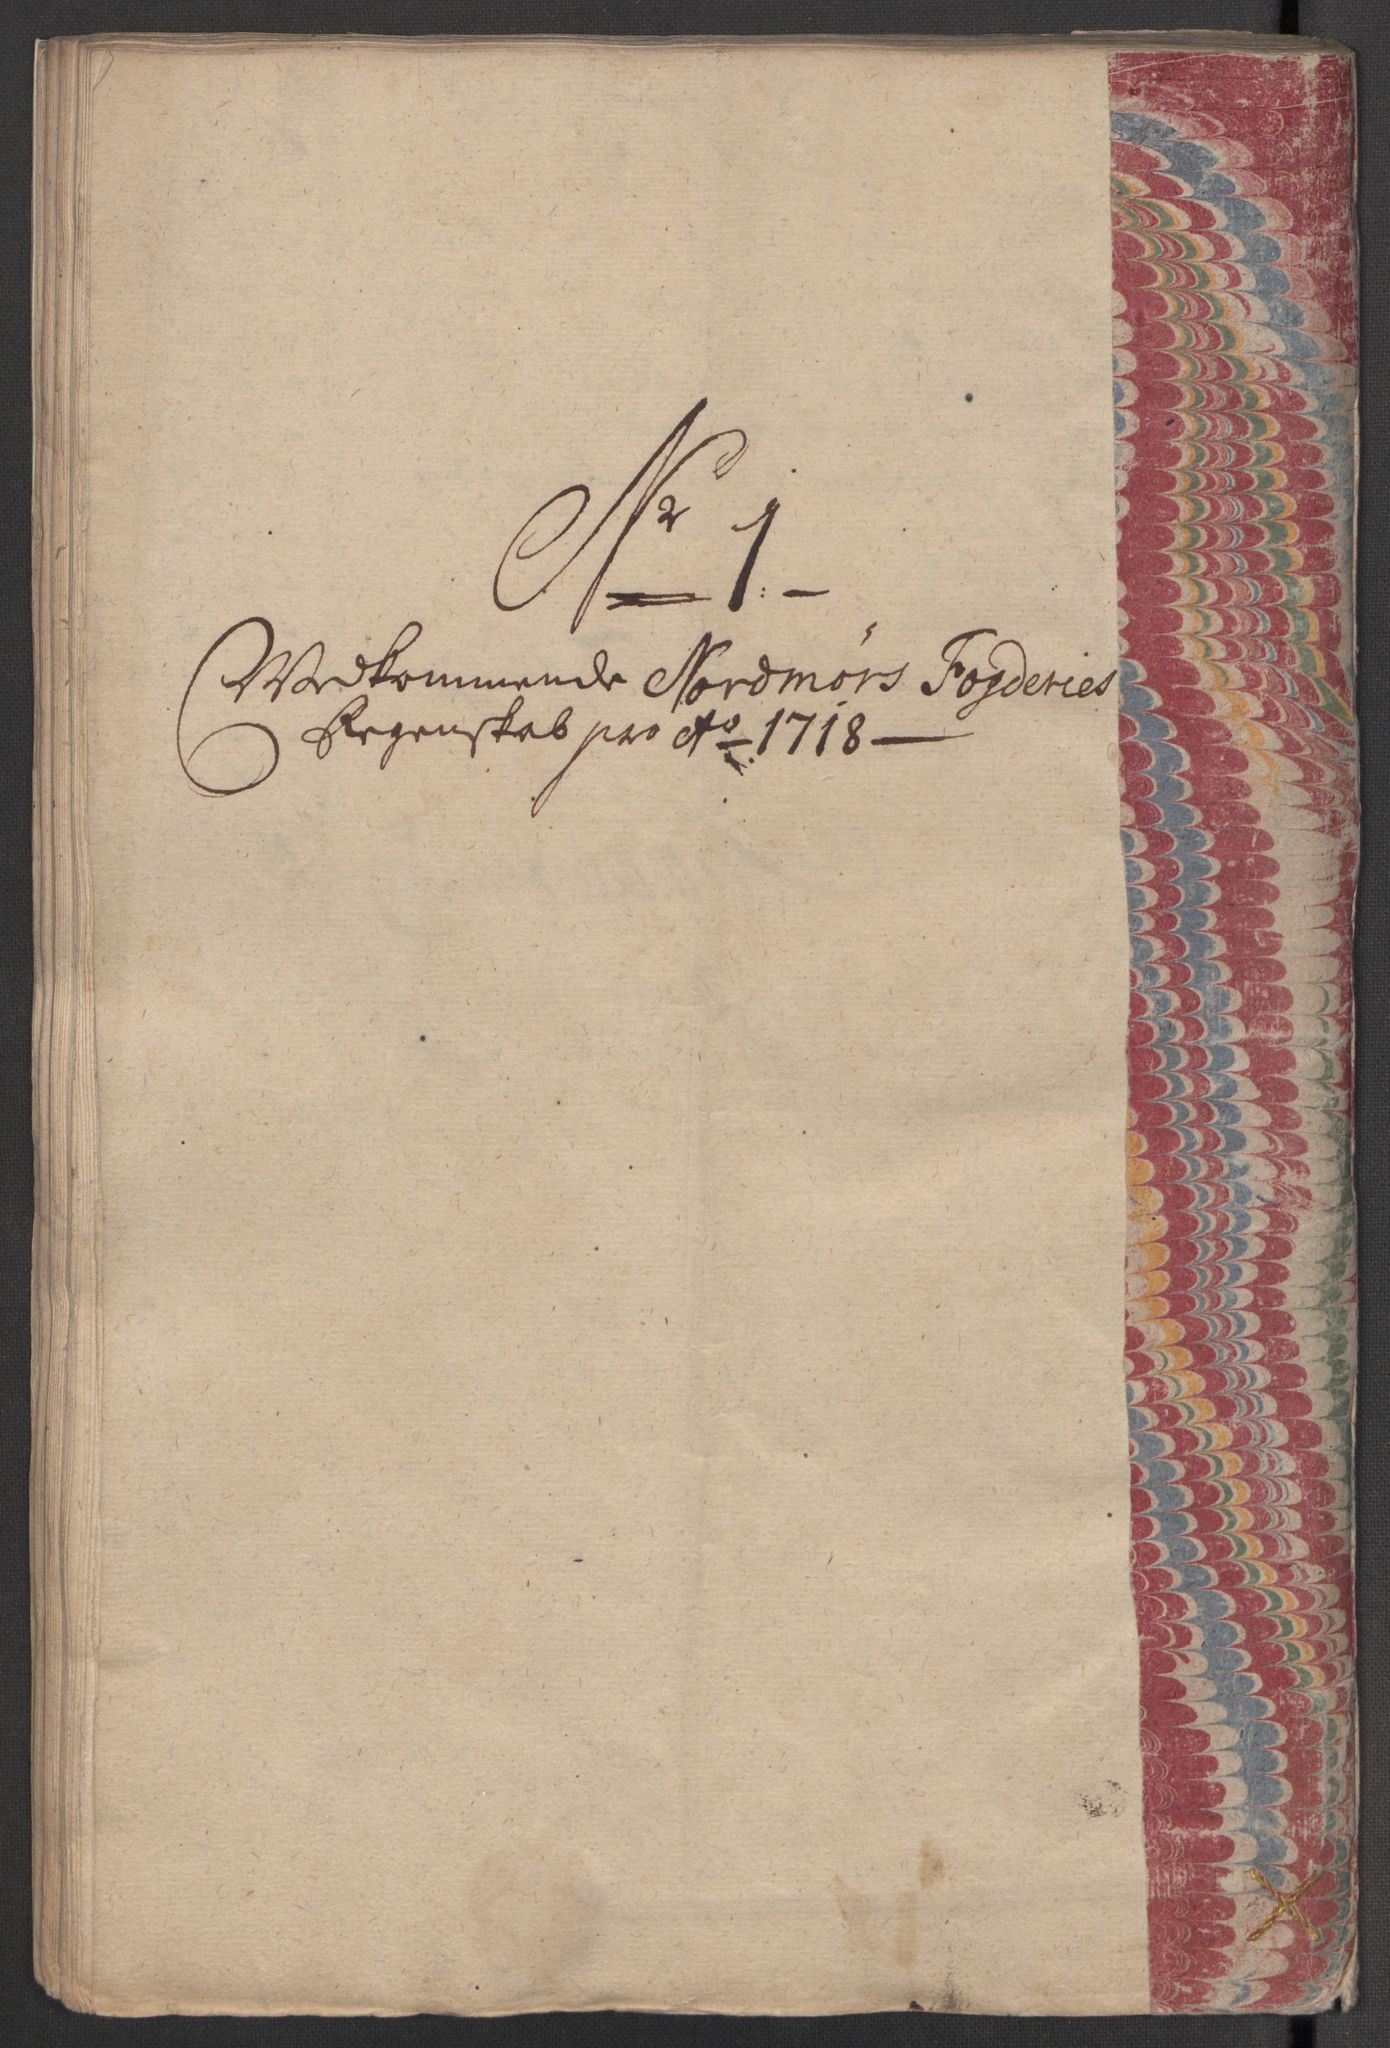 Nr 1.
Vedkommende Nordmørs Fogderies
Regenskab pro Ao 1718